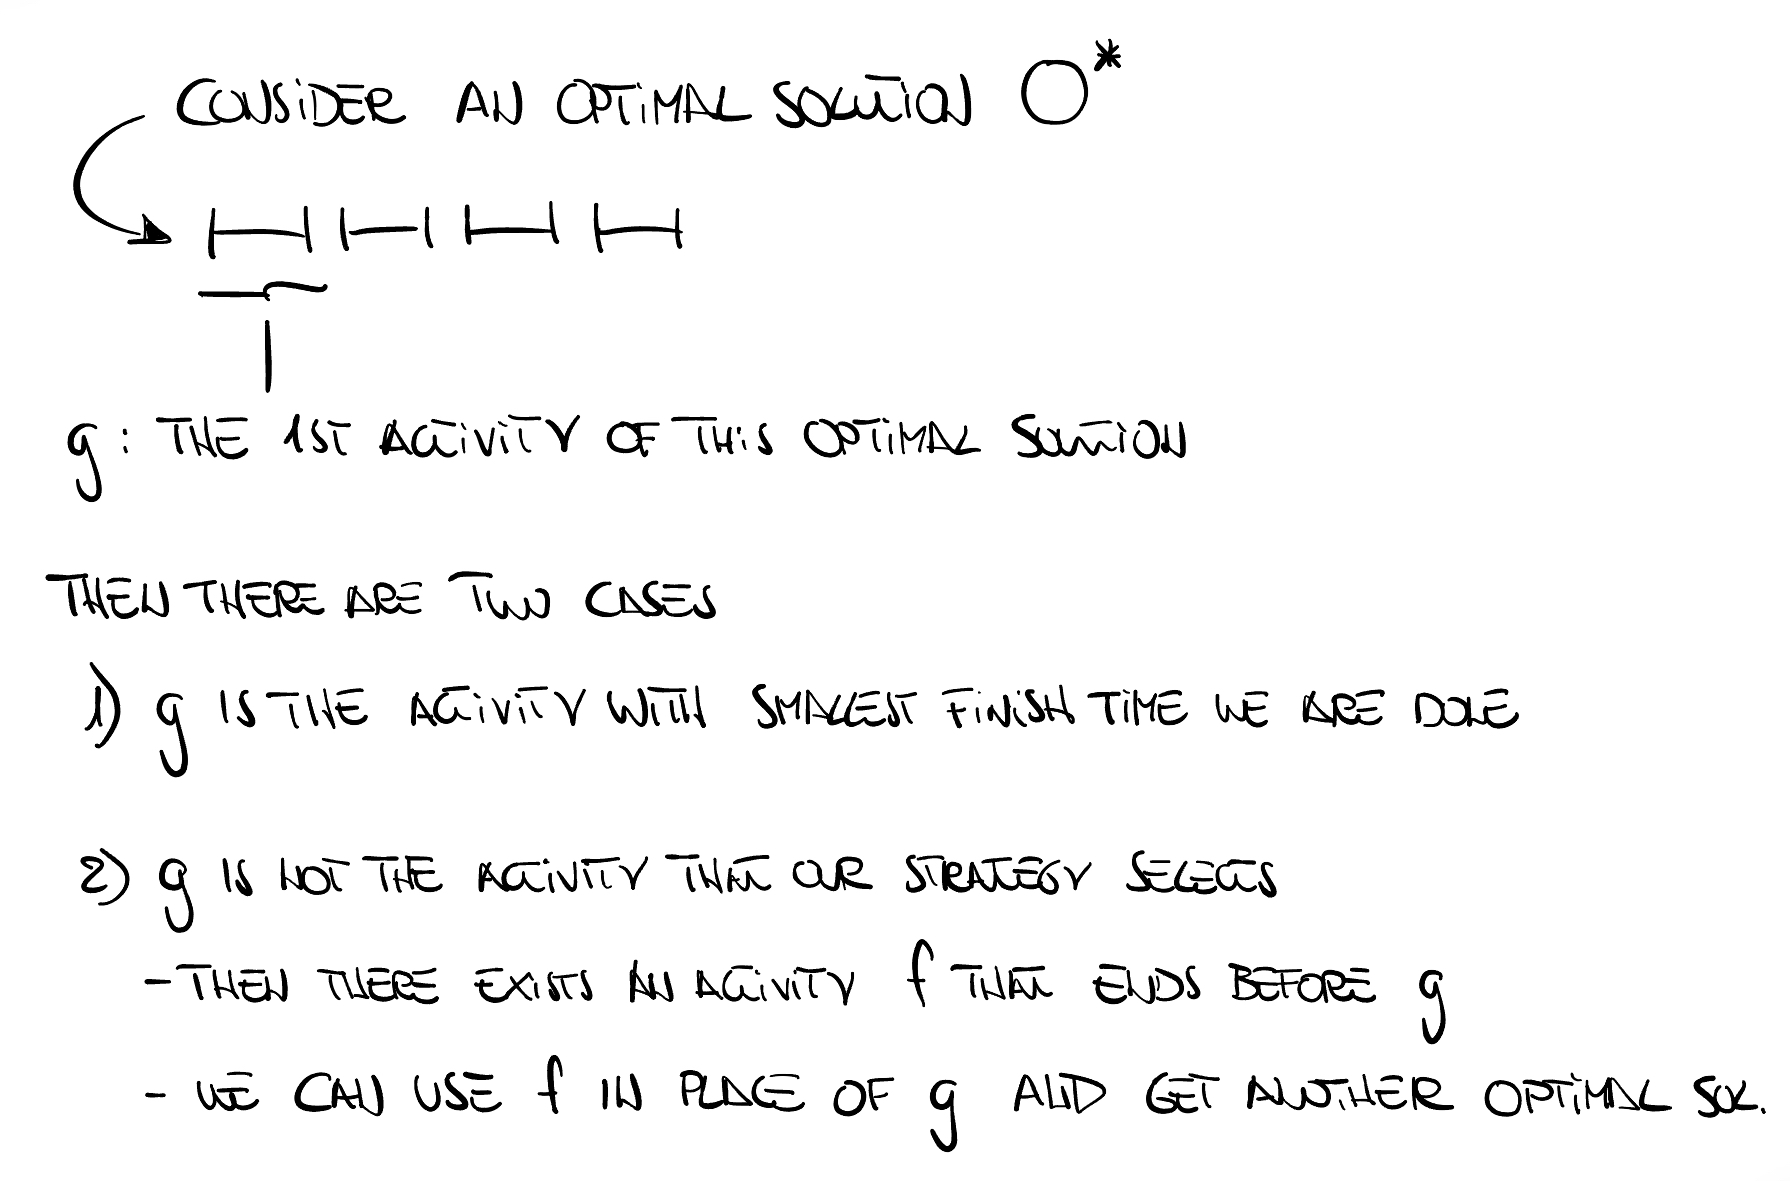 CONSIDER AN OPTIMAL SOLUTION O*
g: THE 1ST ACTIVITY OF THIS OPTIMAL SOLUTION
THEN THERE ARE TWO CASES
1) g IS THE ACTIVITY WITH SMALLEST FINISH TIME WE ARE DONE
2) g IS NOT THE ACTIVITY THAT OUR STRATEGY SELECTS
- THEN THERE EXISTS AN ACTIVITY f THAT ENDS BEFORE g
- WE CAN USE f IN PLACE OF g AND GET ANOTHER OPTIMAL SOL.